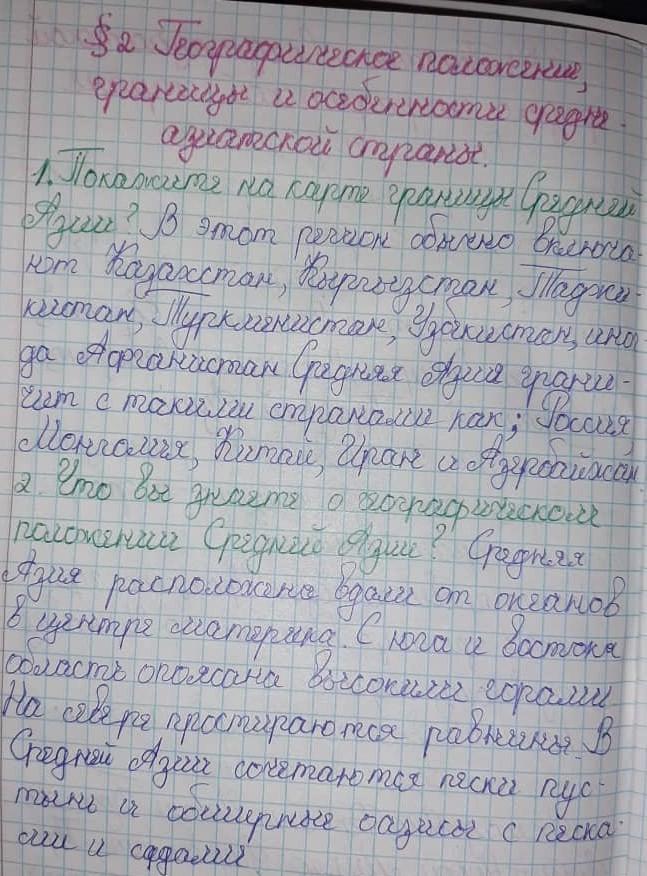 §2 Географическое положение,
границы и особенности средне-
азиатской страны.
1. Покажите на карте границы Средней
Азии? В этот регион обычно включа-
ют Казахстан, Кыргызстан, Таджи-
кистан, Туркменистан, Узбекистан, иног-
да Афганистан Средняя Азия грани-
чит с такими странами как; Россия,
Монголия, Китай, Иран и Азербайжан
2. Что вы знаете о географическом
положении Средней Азии? Средняя
Азия расположена вдали от океанов
в центре материка. С юга и востока
область опоясана высокими горами.
На севере простираются равнины. В
Средней Азии сочетаются пески пус-
тынь и обширные оазисы с песка-
ми и садами